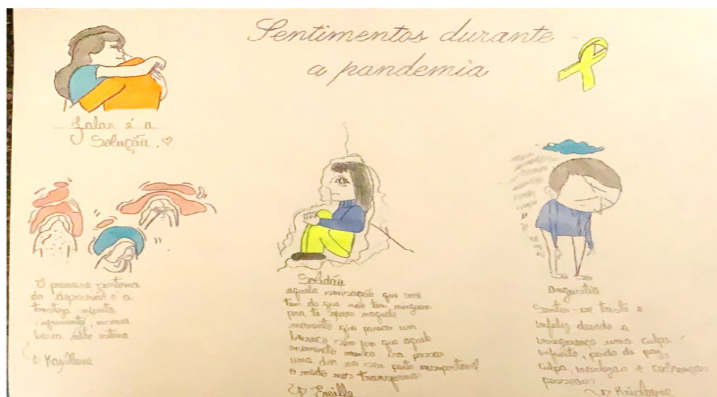 Sentimentos durante
a pandemia
Falar é a
Solução.
O primeiro sintoma
da depressão é a
tristeza
baixa auto estima
Kazillene
Solidão
aquela sensação que você
tem de que não tem ninguém
pra te apoiar naquele
momento que parece um
buraco sem fim que aquele
momento nunca ira passar
uma dor no seu peito insuportável
o medo nos transforma
Emille
angustia
Sentir-se triste e
infeliz devido a
insegurança uma culpa
infinita, perda da paz,
culpa, e cobranças
pessoais